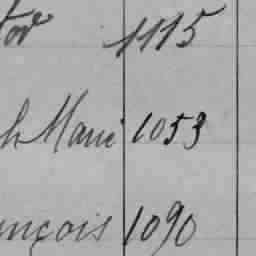 tor 1115
h Marie 1053
nçois 1090